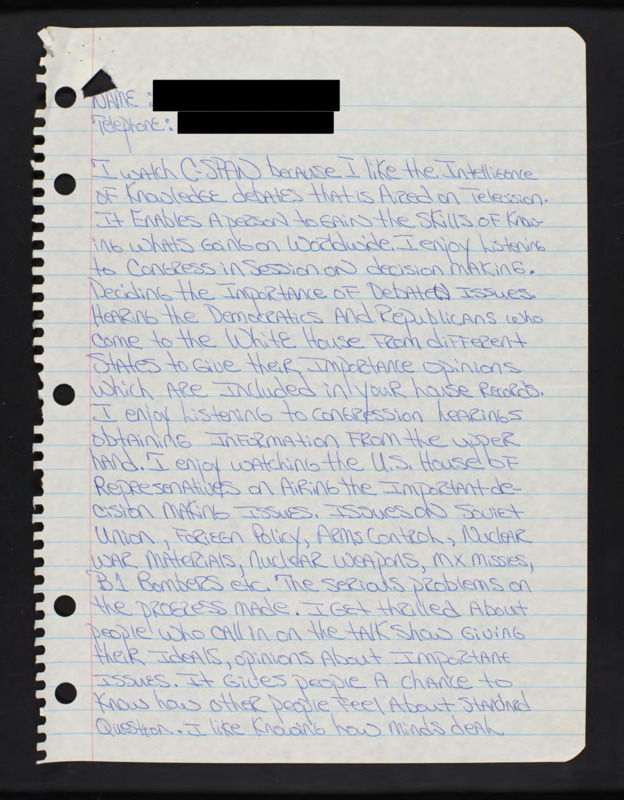 NAME :
Telephone:
I watch C-SPAN because I like the Intelligence
of Knowledge debates that is Aired on Telession.
It Enables A person to gain the Skills of Know-
ing whats going on Worldwide. I enjoy Listening
to Congress in Session on decision making.
Deciding the Importance of Debated Issues.
Hearing the Democratics And Republicans who
come to the White House From different
States to Give their Importance opinions
which are Included in your house Records.
I enjoy Listening to congression hearings
obtaining Information From the upper
hand. I enjoy watching the U.S. House of
Represenatives on Airing the Important de-
cision making Issues. Issues on Soviet
Union, Foriegn Policy, Arms Control, Nuclear
war materials, nuclear weapons, mx missies,
B1 Bombers etc. The serious problems on
the progress made. I Get thrilled About
people who call in on the talk show Giving
their Ideals, opinions About Important
Issues. It Gives people A chance to
Know how other people Feel About Standard
Question. I like Knowing how minds deal